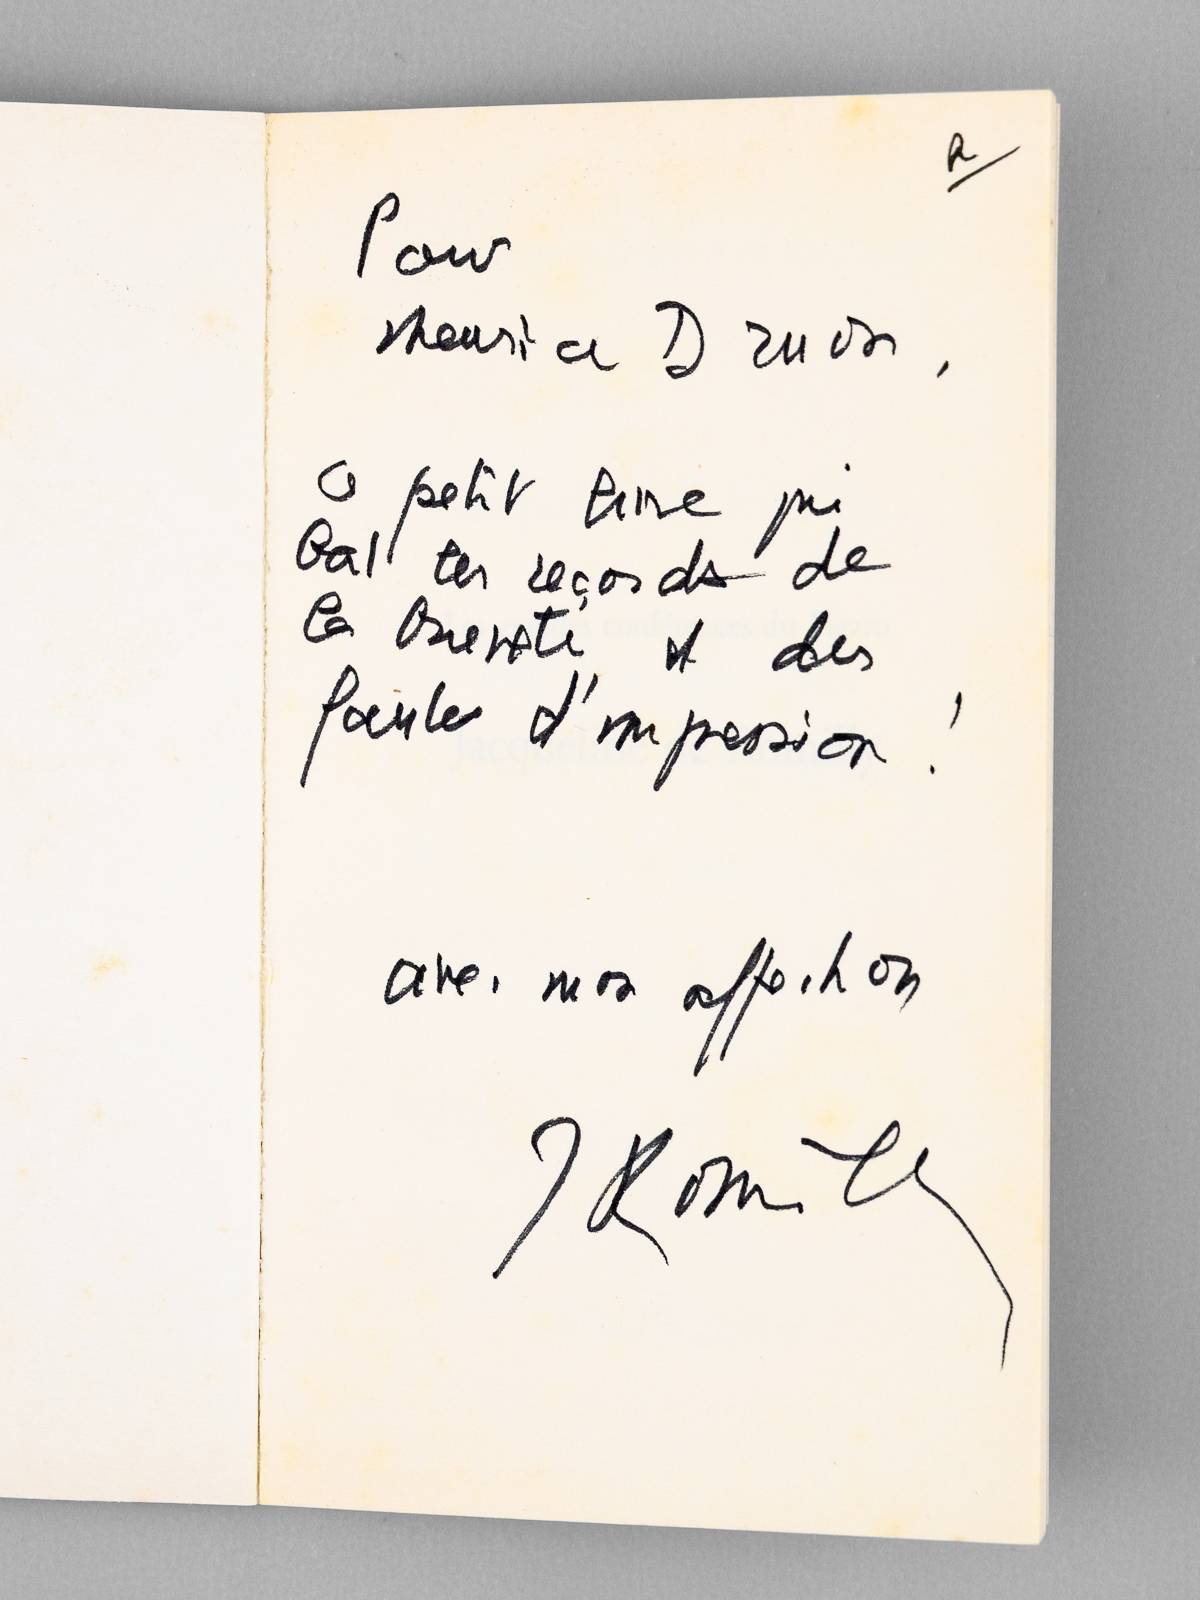 R
Pour
Maurice Druon,
ce petit livre qui
bat les records de
la brièveté et des
fautes d'impression !
avec mon affection
JRomilly